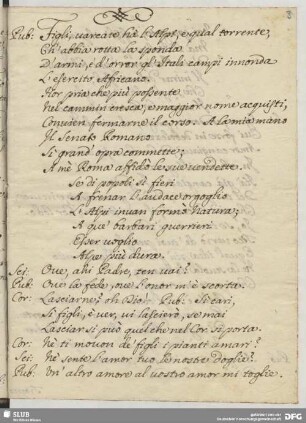 Pub: Figli, varcate hà l'Alpi, e qual torrente,
Ch'abbia rotta la sponda
D'armi, e d'orror gl'Itali campi innonda
L'esercito Africano.
Hor pria che più possente
Nel cammin cresca, e maggior nome acquisti,
Convien fermarne il corso. A la mia mano
Il Senato Romano
Sì grand'opra committe;
A mè Roma affidò le sue vendette.
Se di popoli sì fieri
A frenar l'audace orgoglio
L'Alpi invan formò Natura;
A que' barbari guerrieri
Esser voglio
Alpe più dura.
Sci: Ove, ahi Padre, ten vai?
Pub: Ove la fede, ove l'onor m'è scorta.
Cor: Lasciarne? oh Dio! Pub: Sì cari,
Sì figli, è ver, vi lascierò, se mai
Lasciar si può quel che nel Cor si porta.
Cor: Nè ti movon de' figli i pianti amari?
Sci: Nè sente l'amor tuo le nostre doglie?
Pub: Un'altro amore al vostro amor mi toglie.
SLUB